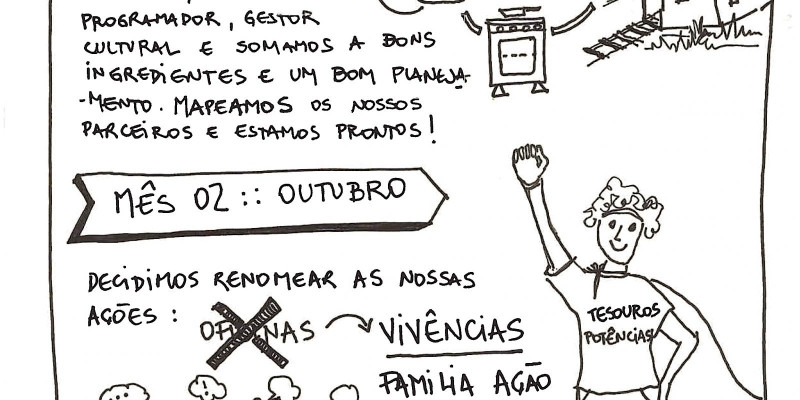 PROGRAMADOR, GESTOR
CULTURAL E SOMAMOS A BONS
INGREDIENTES E UM BOM PLANEJA-
-MENTO. MAPEAMOS OS NOSSOS
PARCEIROS E ESTAMOS PRONTOS!
MÊS 02 :: OUTUBRO
DECIDIMOS RENOMEAR AS NOSSAS
AÇÕES :
OFICINAS → VIVÊNCIAS
FAMILIA AÇÃO
TESOUROS
POTÊNCIAS